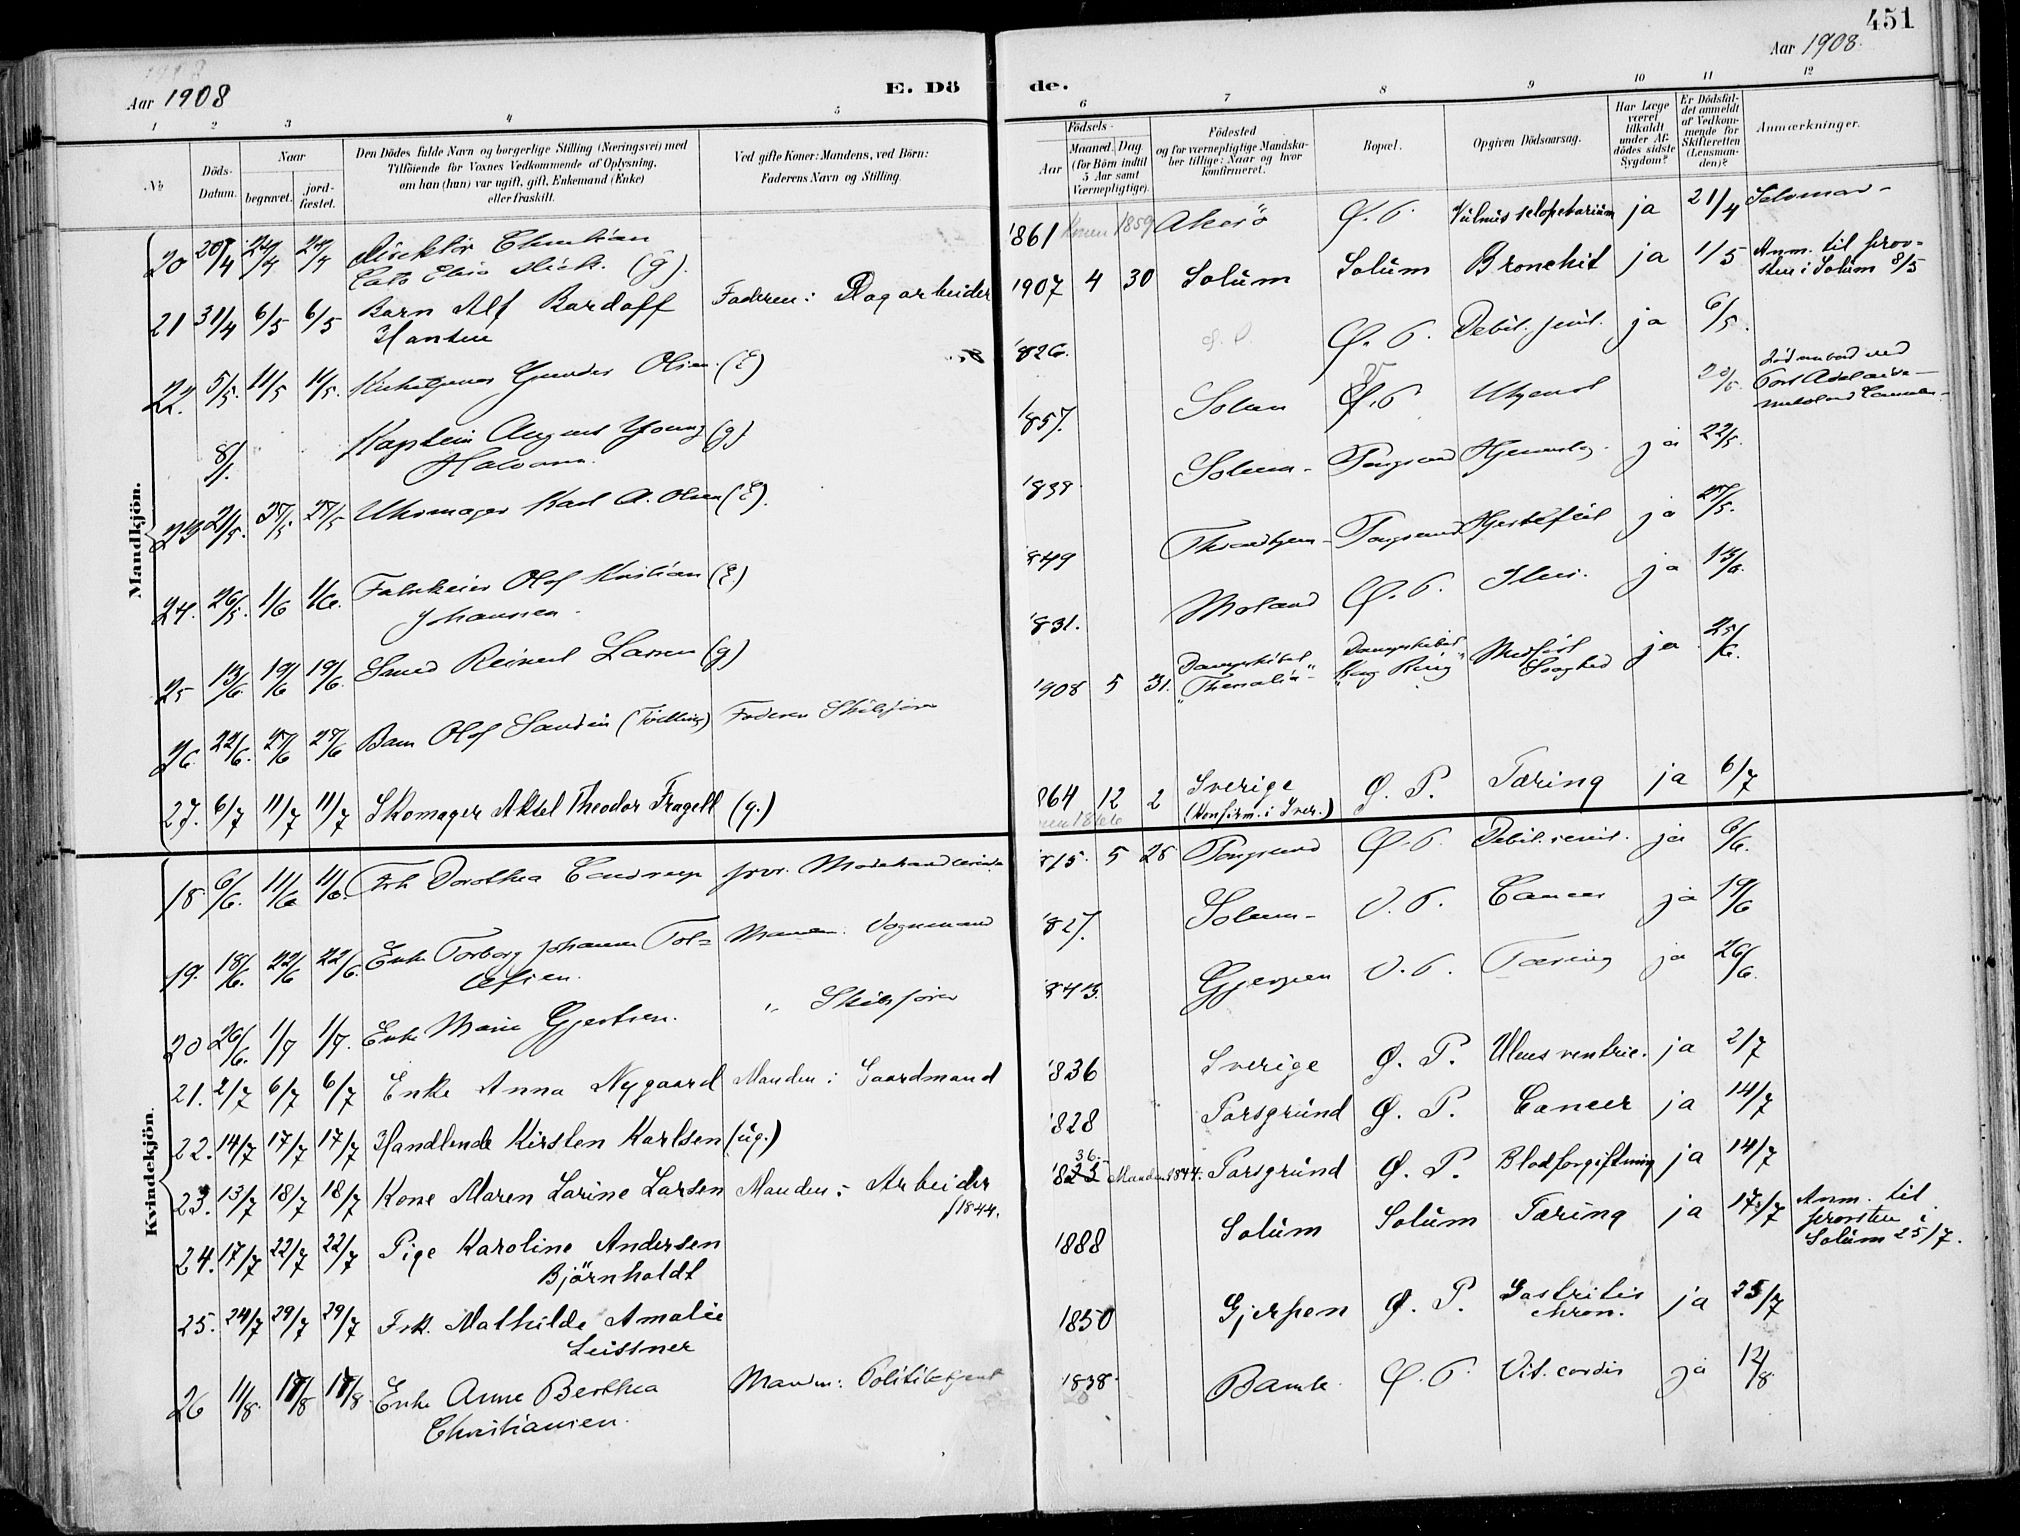 451
Aar 1908
E. Dö
de.
Aar 1908.
1 2 3 4 5 6 7 8 9 10 11 12
No
Döds-Datum.
Naar
begravet.
jord-fæstet.
Den Dödes fulde Navn og borgerlige Stilling (Næringsvei) med
Tilföiende for Voxnes Vedkommende af Oplysning,
om han (hun) var ugift, gift, Enkemand (Enke)
eller fraskilt.
Ved gifte Koner: Mandens, ved Börn:
Faderens Navn og Stilling.
Födsels-
Aar
Maaned. Dag
(for Börn indtil
5 Aar samt
Værnepligtige).
Födested
og for værnepligtige Mandska-
ber tillige: Naar og hvor
konfirmeret.
Bopæl.
Opgiven Dödsaarsag.
Har Læge
været
tilkaldt
under Af-
dödes sidste
Sygdom?
Er Dödsfal-
det anmeldt
af Vedkom-
mende for
Skifteretten
(Lensman-
den)?
Anmærkninger.
Mandkjön.
20 20/4 24/4 24/4 Direktör Christian '861 Konen 1859 Akerö Ø. P. Vulnus sclopetarium ja 21/4 Selvmord
Cato (g).
21 31/4 6/5 6/5 Barn Alf Bardoff Faderen: Dagarbeider 1907 4 30 Solum Solum Bronchit ja 1/5 Anm. til prov-
Hansen sten i Solum 8/5
22. 5/5. 11/5 11/5. Gunder Olsen. (E) '826. Ø. P. Debil. senil. ja 6/5.
8/ Kaptein August Young (g) '857. Solum Ø. P. Ukjent 20/5. Död ombord ved
Halvorsen. Port Adelaide
23 21/5. 27/5 27/5 Uhrmager Karl A. Olsen (E). '838 Solum Porsgrund ja 22/5.
24. 26/5. 1/6 1/6. Fabrikeier Olaf Kristian (E) '849 Throndhjem Porsgrund Hjertefeil ja 27/5.
Johannesen.
25 13/6 19/6 19/6. Smed Reinert Larsen (g) '831. Moland Ø. P. Ileus. ja 13/6.
26. 22/6. 27/6 27/6 Barn Olaf Sandin (Tvilling) Faderen Skibsförer 1908 5 31. Dampskibet Dampskibet Medfödt ja 25/6.
"Thessalia" "Kong Ring" Svaghed
27. 6/7 11/7 11/7 Skomager Aksel Theodor Fragell (g.) 864 12 2 Sverige Ø. P. Tæring ja 6/7
(Konfirm. i Sver.)
Kvindekjön.
18 6/6. 11/6 11/6. Frk Dorothea forr. Modehandlerinde '815. 5 28 Porsgrund Ø. P. Debil. senil. ja 6/6.
19. 18/6. 22/6 22/6. Enke Torborg Johanne Tol= Manden: Vognmand '827. Solum V. P. Cancer ja 19/6
lefsen.
20 26/6. 1/7 1/7. Enke Marie Gjertsen. " Skibsförer '843. Gjerpen V. P. Tæring ja 26/6.
21. 2/7 6/7 6/7 Enke Anna Nygaard Manden: Gaardmand '836 Sverige Ø. P. Ulcus ventric. ja 2/7
22. 14/7 17/7 17/7 Handlende Kirsten Karlsen (ug.) '828 Porsgrund Ø. P. Cancer ja 14/7
23. 13/7 18/7 18/7 Kone Maren Larine Larsen Manden: Arbeider f1844. '825 36. Manden 1844. Porsgrund Ø. P. Blodforgiftning ja 14/7
24. 17/7 22/7 22/7 Pige Karoline Andersen 1888 Solum Solum Tæring ja 17/7 Anm. til
Björnholdt provsten i
Solum 25/7.
25. 24/7 29/7 29/7 Frk. Mathilde Amalie 1850 Gjerpen Ø. P. Gastritis ja 25/7
Leissner chron.
26 11/8. 18/8 18/8. Enke Anne Berthea Manden: Politibetjent 1838 Bamle Ø. P. Vit. cordis ja 12/8.
Christiansen.